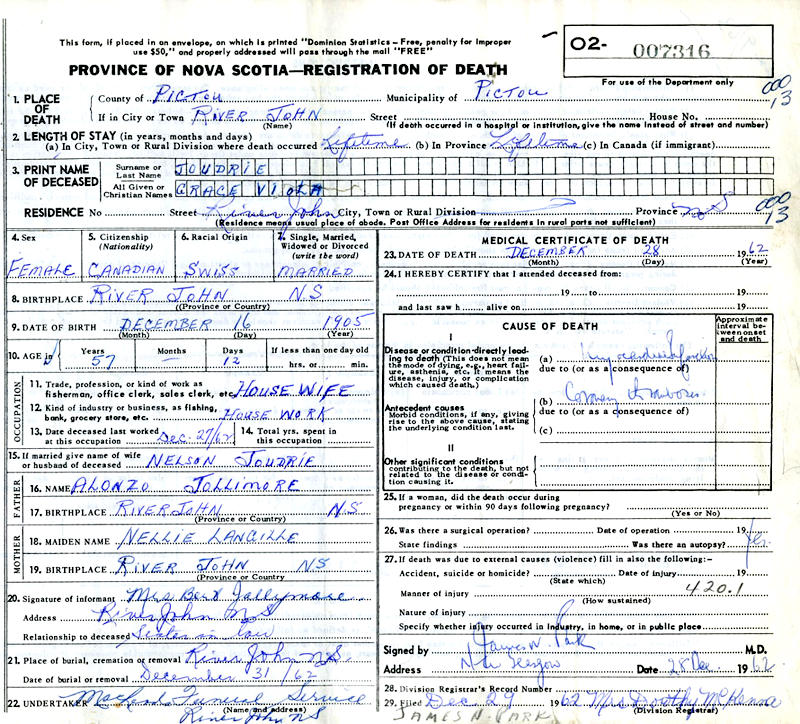 This form, if placed in an envelope, on which is printed "Dominion Statistics—Free, penalty for improper
use $50," and properly addressed will pass through the mail "FREE"
02- 007316
For use of the Department only
PROVINCE OF NOVA SCOTIA—REGISTRATION OF DEATH
000
13
1. PLACE OF DEATH
County of PICTOU Municipality of PICTOU
If in City or Town RIVER JOHN Street House No.
(Name) (If death occurred in a hospital or institution, give the name instead of street and number)
2. LENGTH OF STAY (in years, months and days)
(a) In City, Town or Rural Division where death occurred Lifetime (b) In Province Lifetime (c) In Canada (if immigrant)
3. PRINT NAME OF DECEASED
Surname or Last Name JOUDRIE
All Given or Christian Names GRACE VIOLA
RESIDENCE No Street River John City, Town or Rural Division Province NS
000
13
(Residence means usual place of abode. Post Office Address for residents in rural parts not sufficient)
4. Sex
FEMALE
5. Citizenship
(Nationality)
CANADIAN
6. Racial Origin
SWISS
7. Single, Married, Widowed or Divorced
(write the word)
MARRIED
8. BIRTHPLACE RIVER JOHN NS
(Province or Country)
9. DATE OF BIRTH DECEMBER 16 1905
(Month) (Day) (Year)
10. AGE Years Months Days If less than one day old
57 — 12 hrs. or min.
OCCUPATION
11. Trade, profession, or kind of work as
fisherman, office clerk, sales clerk, etc. HOUSE WIFE
12. Kind of industry or business, as fishing,
bank, grocery store, etc. HOUSE WORK
13. Date deceased last worked at this occupation Dec. 27/62
14. Total yrs. spent in this occupation
15. If married give name of wife
or husband of deceased NELSON JOUDRIE
FATHER
16. NAME ALONZO JOLLIMORE
17. BIRTHPLACE RIVER JOHN NS
(Province or Country)
MOTHER
18. MAIDEN NAME NELLIE LANGILLE
19. BIRTHPLACE RIVER JOHN NS
(Province or Country)
20. Signature of informant Mrs Bert Jollymore
Address River John NS
Relationship to deceased Sister in law
21. Place of burial, cremation or removal River John NS
Date of burial or removal December 31/62
22. UNDERTAKER Funeral Service
(Name and address)
River John NS
MEDICAL CERTIFICATE OF DEATH
23. DATE OF DEATH DECEMBER 28 1962
(Month) (Day) (Year)
24. I HEREBY CERTIFY that I attended deceased from:
19 to 19
and last saw h alive on 19
CAUSE OF DEATH
Approximate interval between onset and death
I
Disease or condition directly leading to death (This does not mean the mode of dying, e.g., heart failure, asthenia, etc. It means the disease, injury, or complication which caused death.)
(a)
due to (or as a consequence of)
Antecedent causes
Morbid conditions, if any, giving rise to the above cause, stating the underlying condition last.
(b) Coronary
due to (or as a consequence of)
(c)
II
Other significant conditions
contributing to the death, but not related to the disease or condition causing it.
25. If a woman, did the death occur during
pregnancy or within 90 days following pregnancy?
(Yes or No)
26. Was there a surgical operation? Date of operation 19
State findings Was there an autopsy? yes
27. If death was due to external causes (violence) fill in also the following:—
Accident, suicide or homicide? Date of injury 19
(State which)
Manner of injury 420.1
(How sustained)
Nature of injury
Specify whether injury occurred in industry, in home, or in public place
Signed by James N. Park M.D.
Address New Glasgow Date 28 Dec 1962
28. Division Registrar's Record Number
29. Filed Dec 29 1962 Mrs Dorothy
(Division Registrar)
JAMES N. PARK